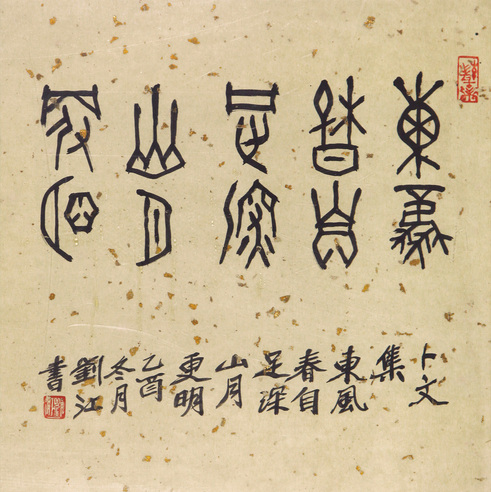 東風
春自
足深
山月
更明
卜文
集
東風
春自
足深
山月
更明
乙酉
冬月
劉江
書